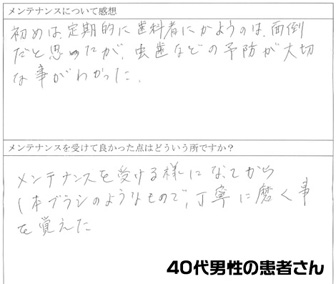 メンテナンスについて感想
初めは、定期的に歯科者にかようのは、面倒
だと思ったが、虫歯などの予防が大切
な事がわかった。
メンテナンスを受けて良かった点はどういう所ですか?
メンテナンスを受ける様になってから
1本ブラシのようなもので、丁寧に磨く事
を覚えた
40代男性の患者さん